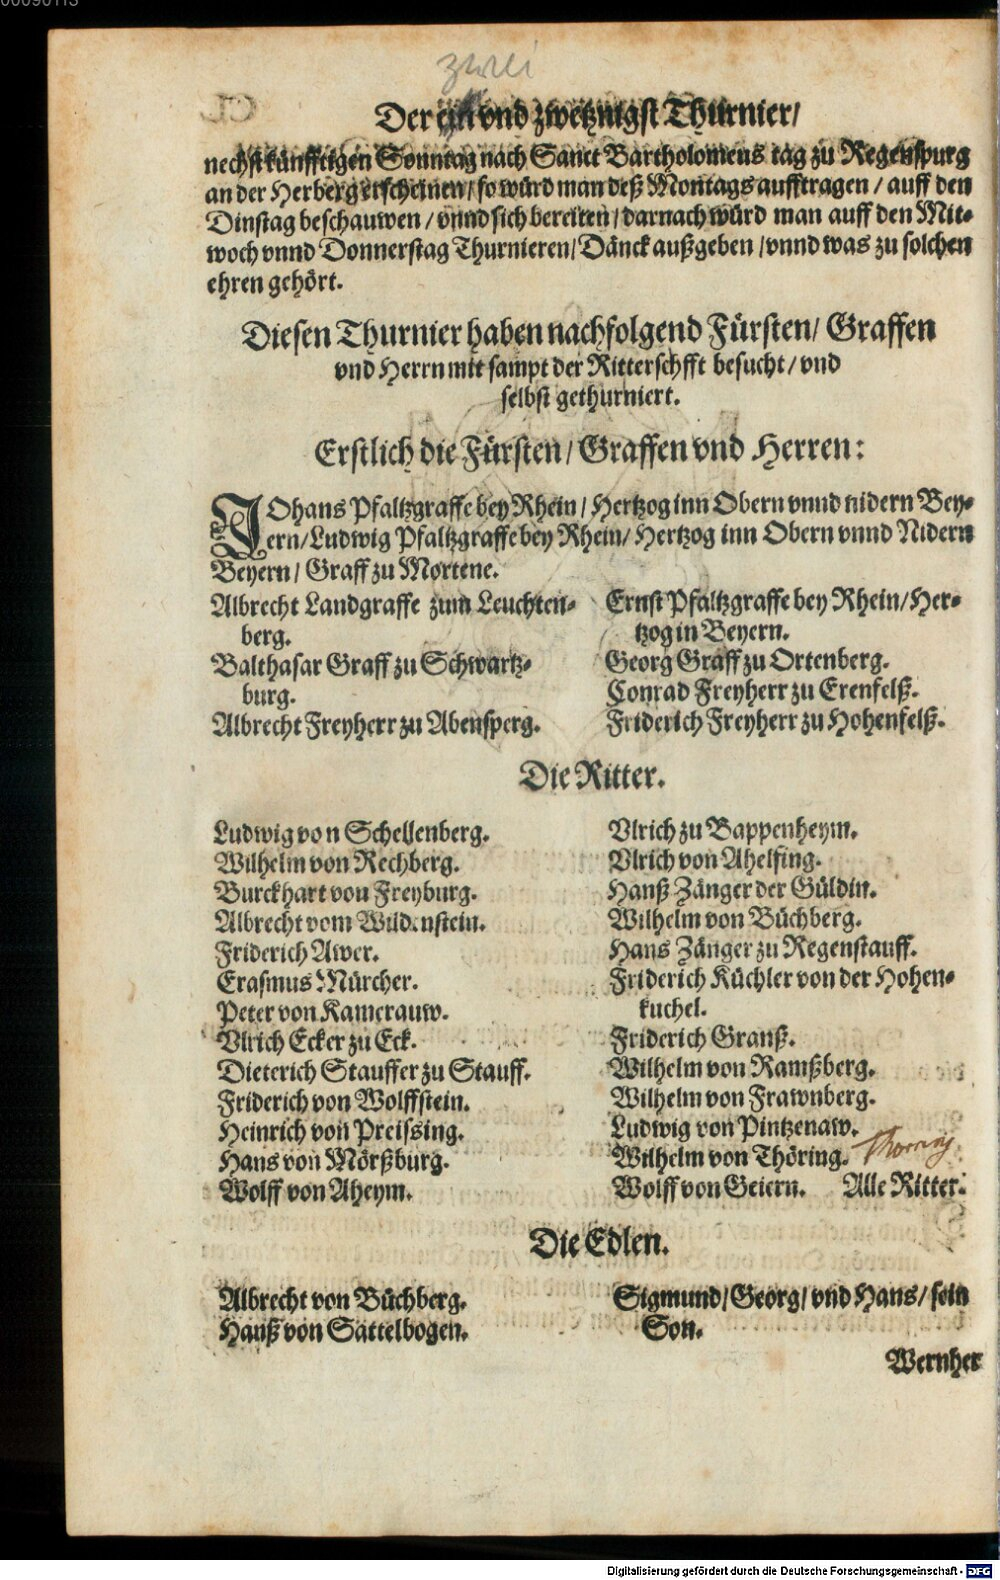 00090113
zwei
Der ein vnd zwetznigst Thurnier/
nechstkünfftigen Sonntag nach Sanct Bartholomeus tag zu Regenspurg
an der Herberg erscheinen/ so würd man deß Montags aufftragen/ auff den
Dinstag beschauwen/ vnnd sich bereiten/ darnach würd man auff den Mit-
woch vnnd Donnerstag Thurnieren/ Dänck außgeben/ vnnd was zu solchen
ehren gehört.
Diesen Thurnier haben nachfolgend Fürsten/ Graffen
vnd Herrn mit sampt der Ritterschfft besucht/ vnd
selbst gethurniert.
Erstlich die Fürsten/ Graffen vnd Herren:
JOhans Pfaltzgraffe bey Rhein/ Hertzog inn Obern vnnd nidern Bey-
ern/ Ludwig Pfaltzgraffe bey Rhein/ Hertzog inn Obern vnnd Nidern
Beyern/ Graff zu Mortene.
Albrecht Landgraffe zum Leuchten-
berg.
Balthasar Graff zu Schwartz-
burg.
Albrecht Freyherr zu Abensperg.
Ernst Pfaltzgraffe bey Rhein/ Her-
tzog in Beyern.
Georg Graff zu Ortenberg.
Conrad Freyherr zu Erenfelß.
Friderich Freyherr zu Hohenfelß.
Die Ritter.
Ludwig von Schellenberg.
Wilhelm von Rechberg.
Burckhart von Freyburg.
Albrecht vom Wildenstein.
Friderich Awer.
Erasmus Mürcher.
Peter von Kamerauw.
Vlrich Ecker zu Eck.
Dieterich Stauffer zu Stauff.
Friderich von Wolffstein.
Heinrich von Preissing.
Hans von Mörßburg.
Wolff von Aheym.
Vlrich zu Bappenheym.
Vlrich von Ahelfing.
Hanß Zänger der Güldin.
Wilhelm von Büchberg.
Hans Zänger zu Regenstauff.
Friderich Küchler von der Hohen-
kuchel.
Friderich Granß.
Wilhelm von Ramßberg.
Wilhelm von Frawnberg.
Ludwig von Pintzenaw.
Wilhelm von Thöring.
Wolff von Geiern. Alle Ritter.
Die Edlen.
Albrecht von Büchberg.
Hanß von Sattelbogen.
Sigmund/ Georg/ vnd Hans/ sein
Son.
Wernher
Digitalisierung gefördert durch die Deutsche Forschungsgemeinschaft - DFG